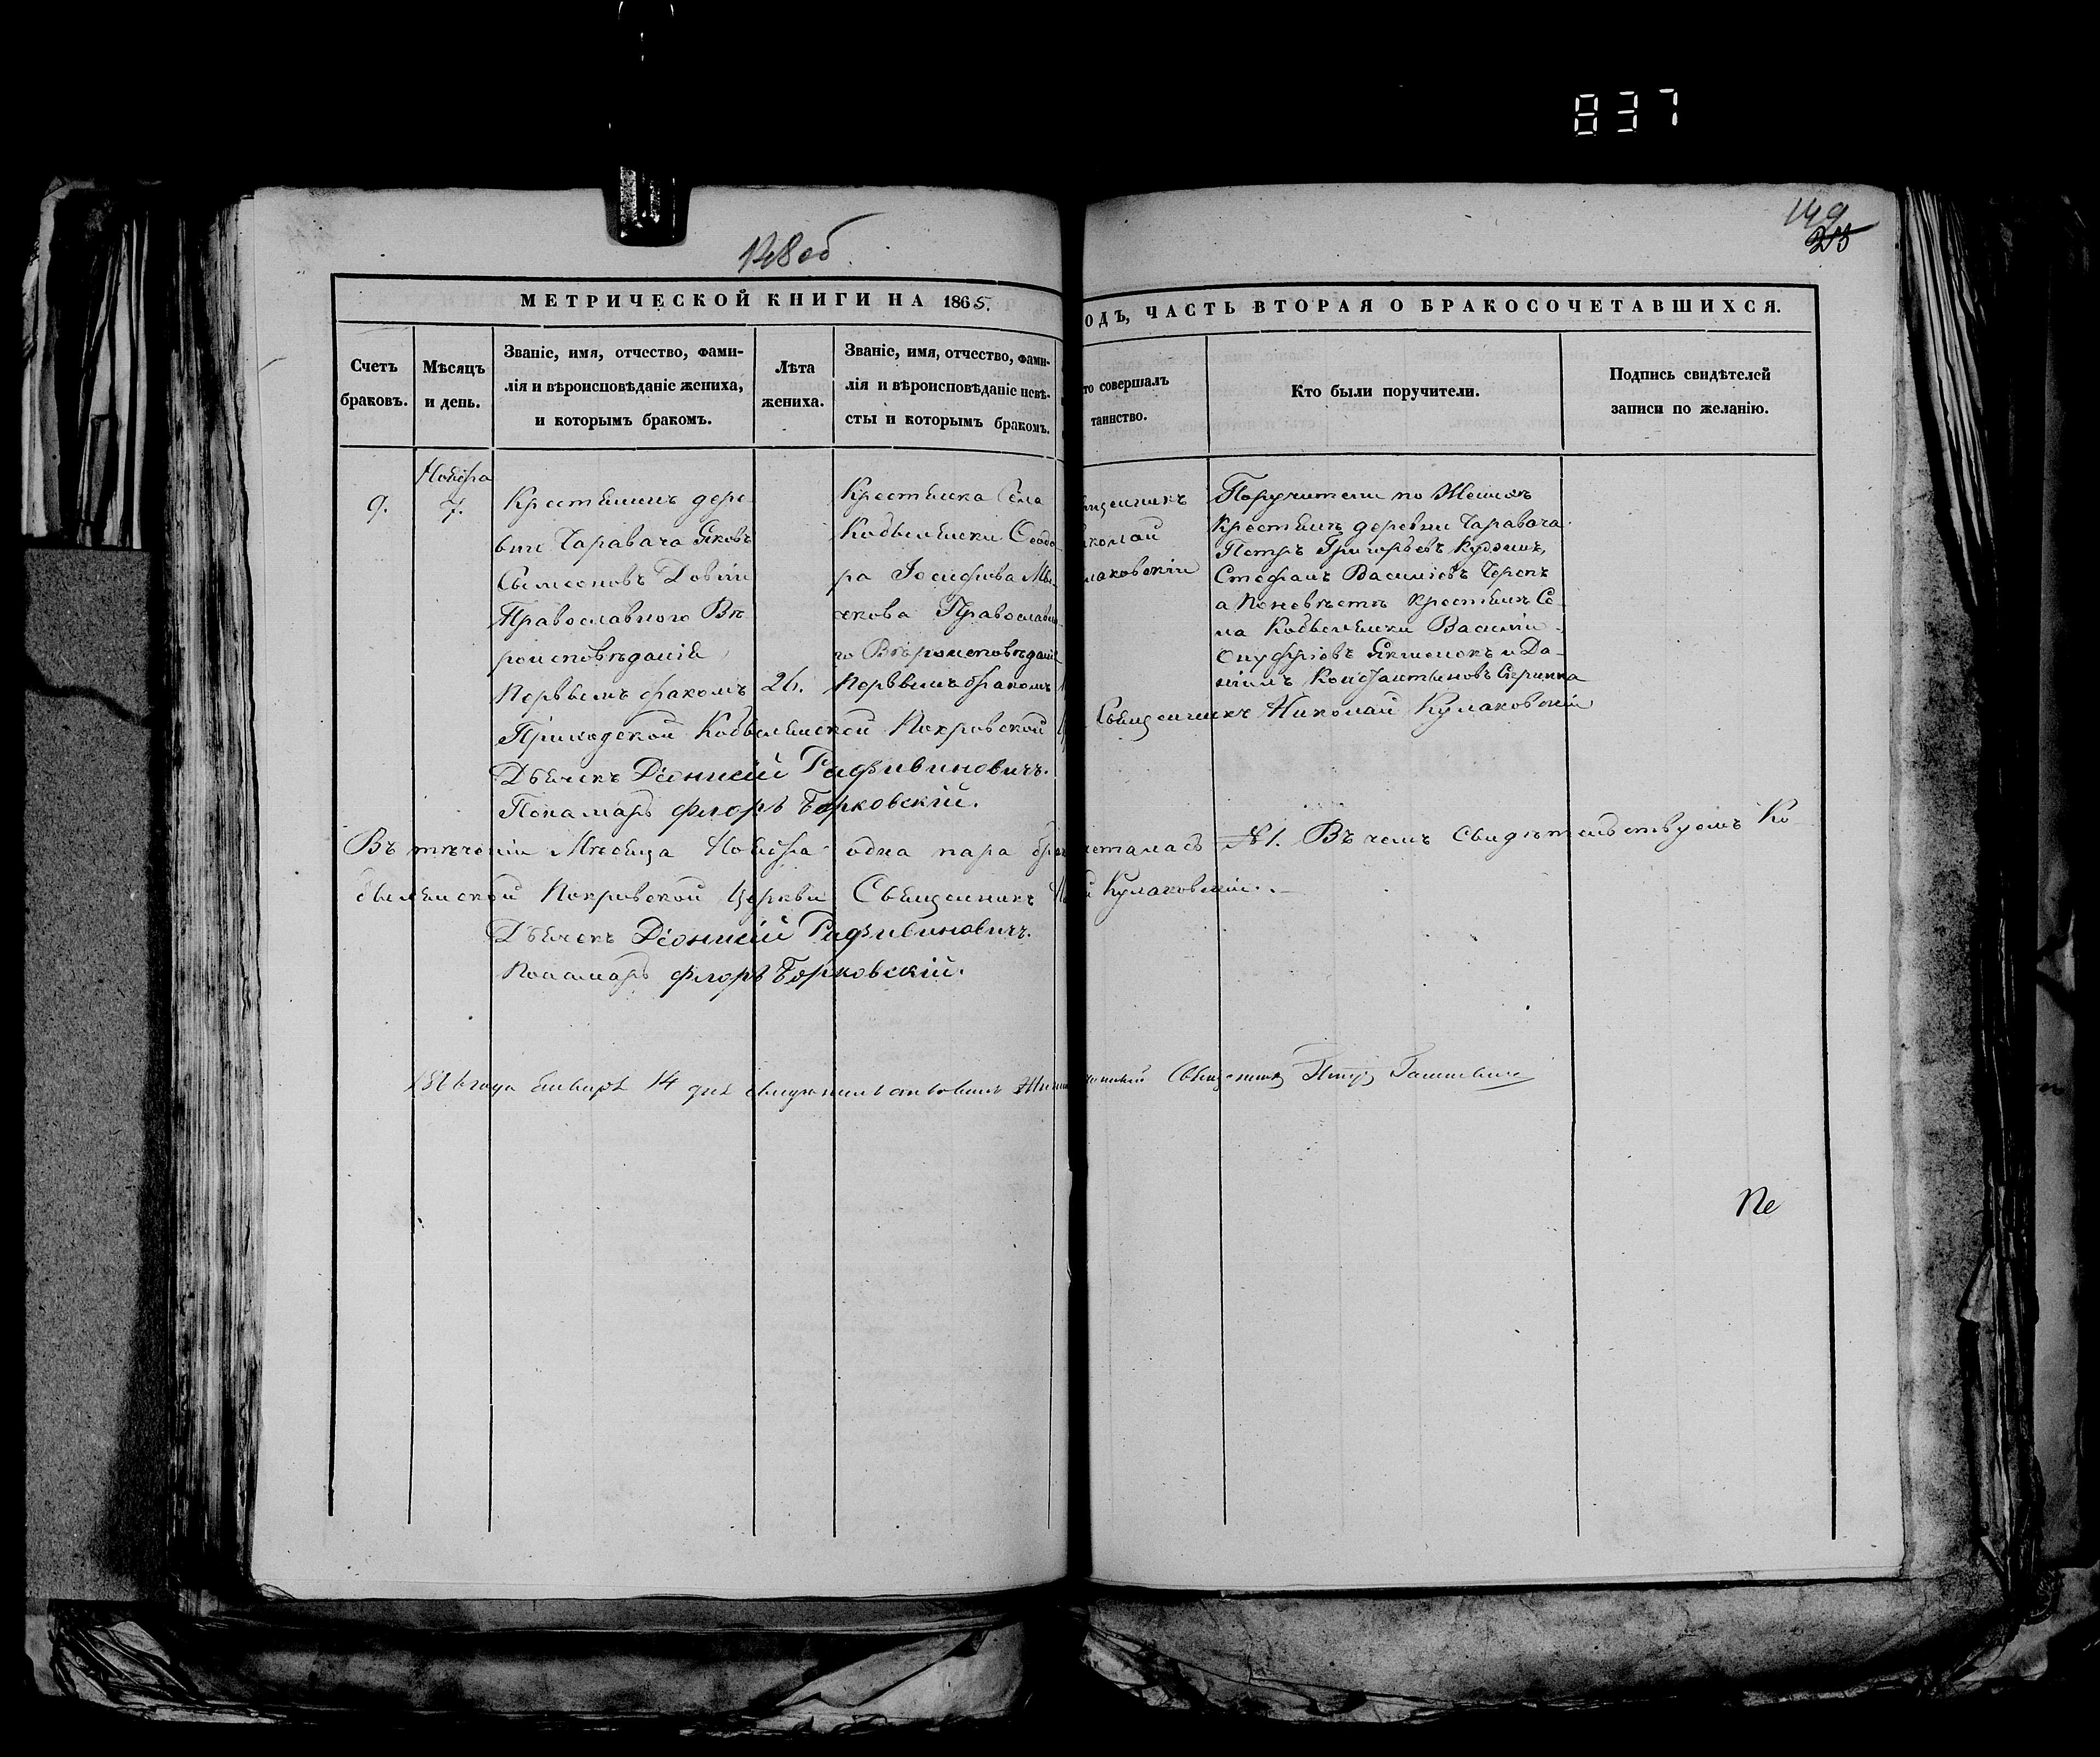 837
148 об.
149
МЕТРИЧЕСКОЙ КНИГИ НА 1865.
ОДЪ, ЧАСТЬ ВТОРАЯ О БРАКОСОЧЕТАВШИХСЯ.
Счетъ
браковъ.
Мѣсяцъ
и день.
Званіе, имя, отчество, фами-
лія и вѣроисповѣданіе жениха,
и которымъ бракомъ.
Лѣта
жениха.
Званіе, имя, отчество, фами-
лія и вѣроисповѣданіе невѣ-
сты и которымъ бракомъ.
то совершалъ
таинство.
Кто были поручители.
Подпись свидѣтелей
записи по желанію.
9.
Ноября
7.
Крестьянинъ дере
вни Чаравача Яковъ
Сымеоновъ
Православного Вѣ
роисповѣданія
Первымъ бракомъ
26.
Крестьянка Села
Кобылянки Феодо-
ра Іосифова
Православна-
го Вѣроисповѣданія
Первымъ бракомъ
ященникъ
иколай
лаковскій
Поручители по Женихѣ
Крестьянъ деревни Чаравача
Петръ Григорьевъ
Стефанъ Василіевъ
а По невѣстѣ крестьянъ Се
ла Кобылянки Василій
Онуфріовъ и Да-
ніилъ Константиновъ
Приходской Кобылянской Покровской
Священникъ Николай Кулаковскій
Дьячекъ Діонисій
Понамарь Флоръ Борковскій.
Въ теченіи Мѣсяца Ноября одна пара
№ 1. Въ чемъ Свидѣтельствуемъ Ко
былянской Покровской Церкви Священникъ
й Кулаковскій.
Дьячекъ Діонисій
Понамарь Флоръ Борковскій.
года Января 14 дня свидѣтельствовалъ
Священникъ Петръ